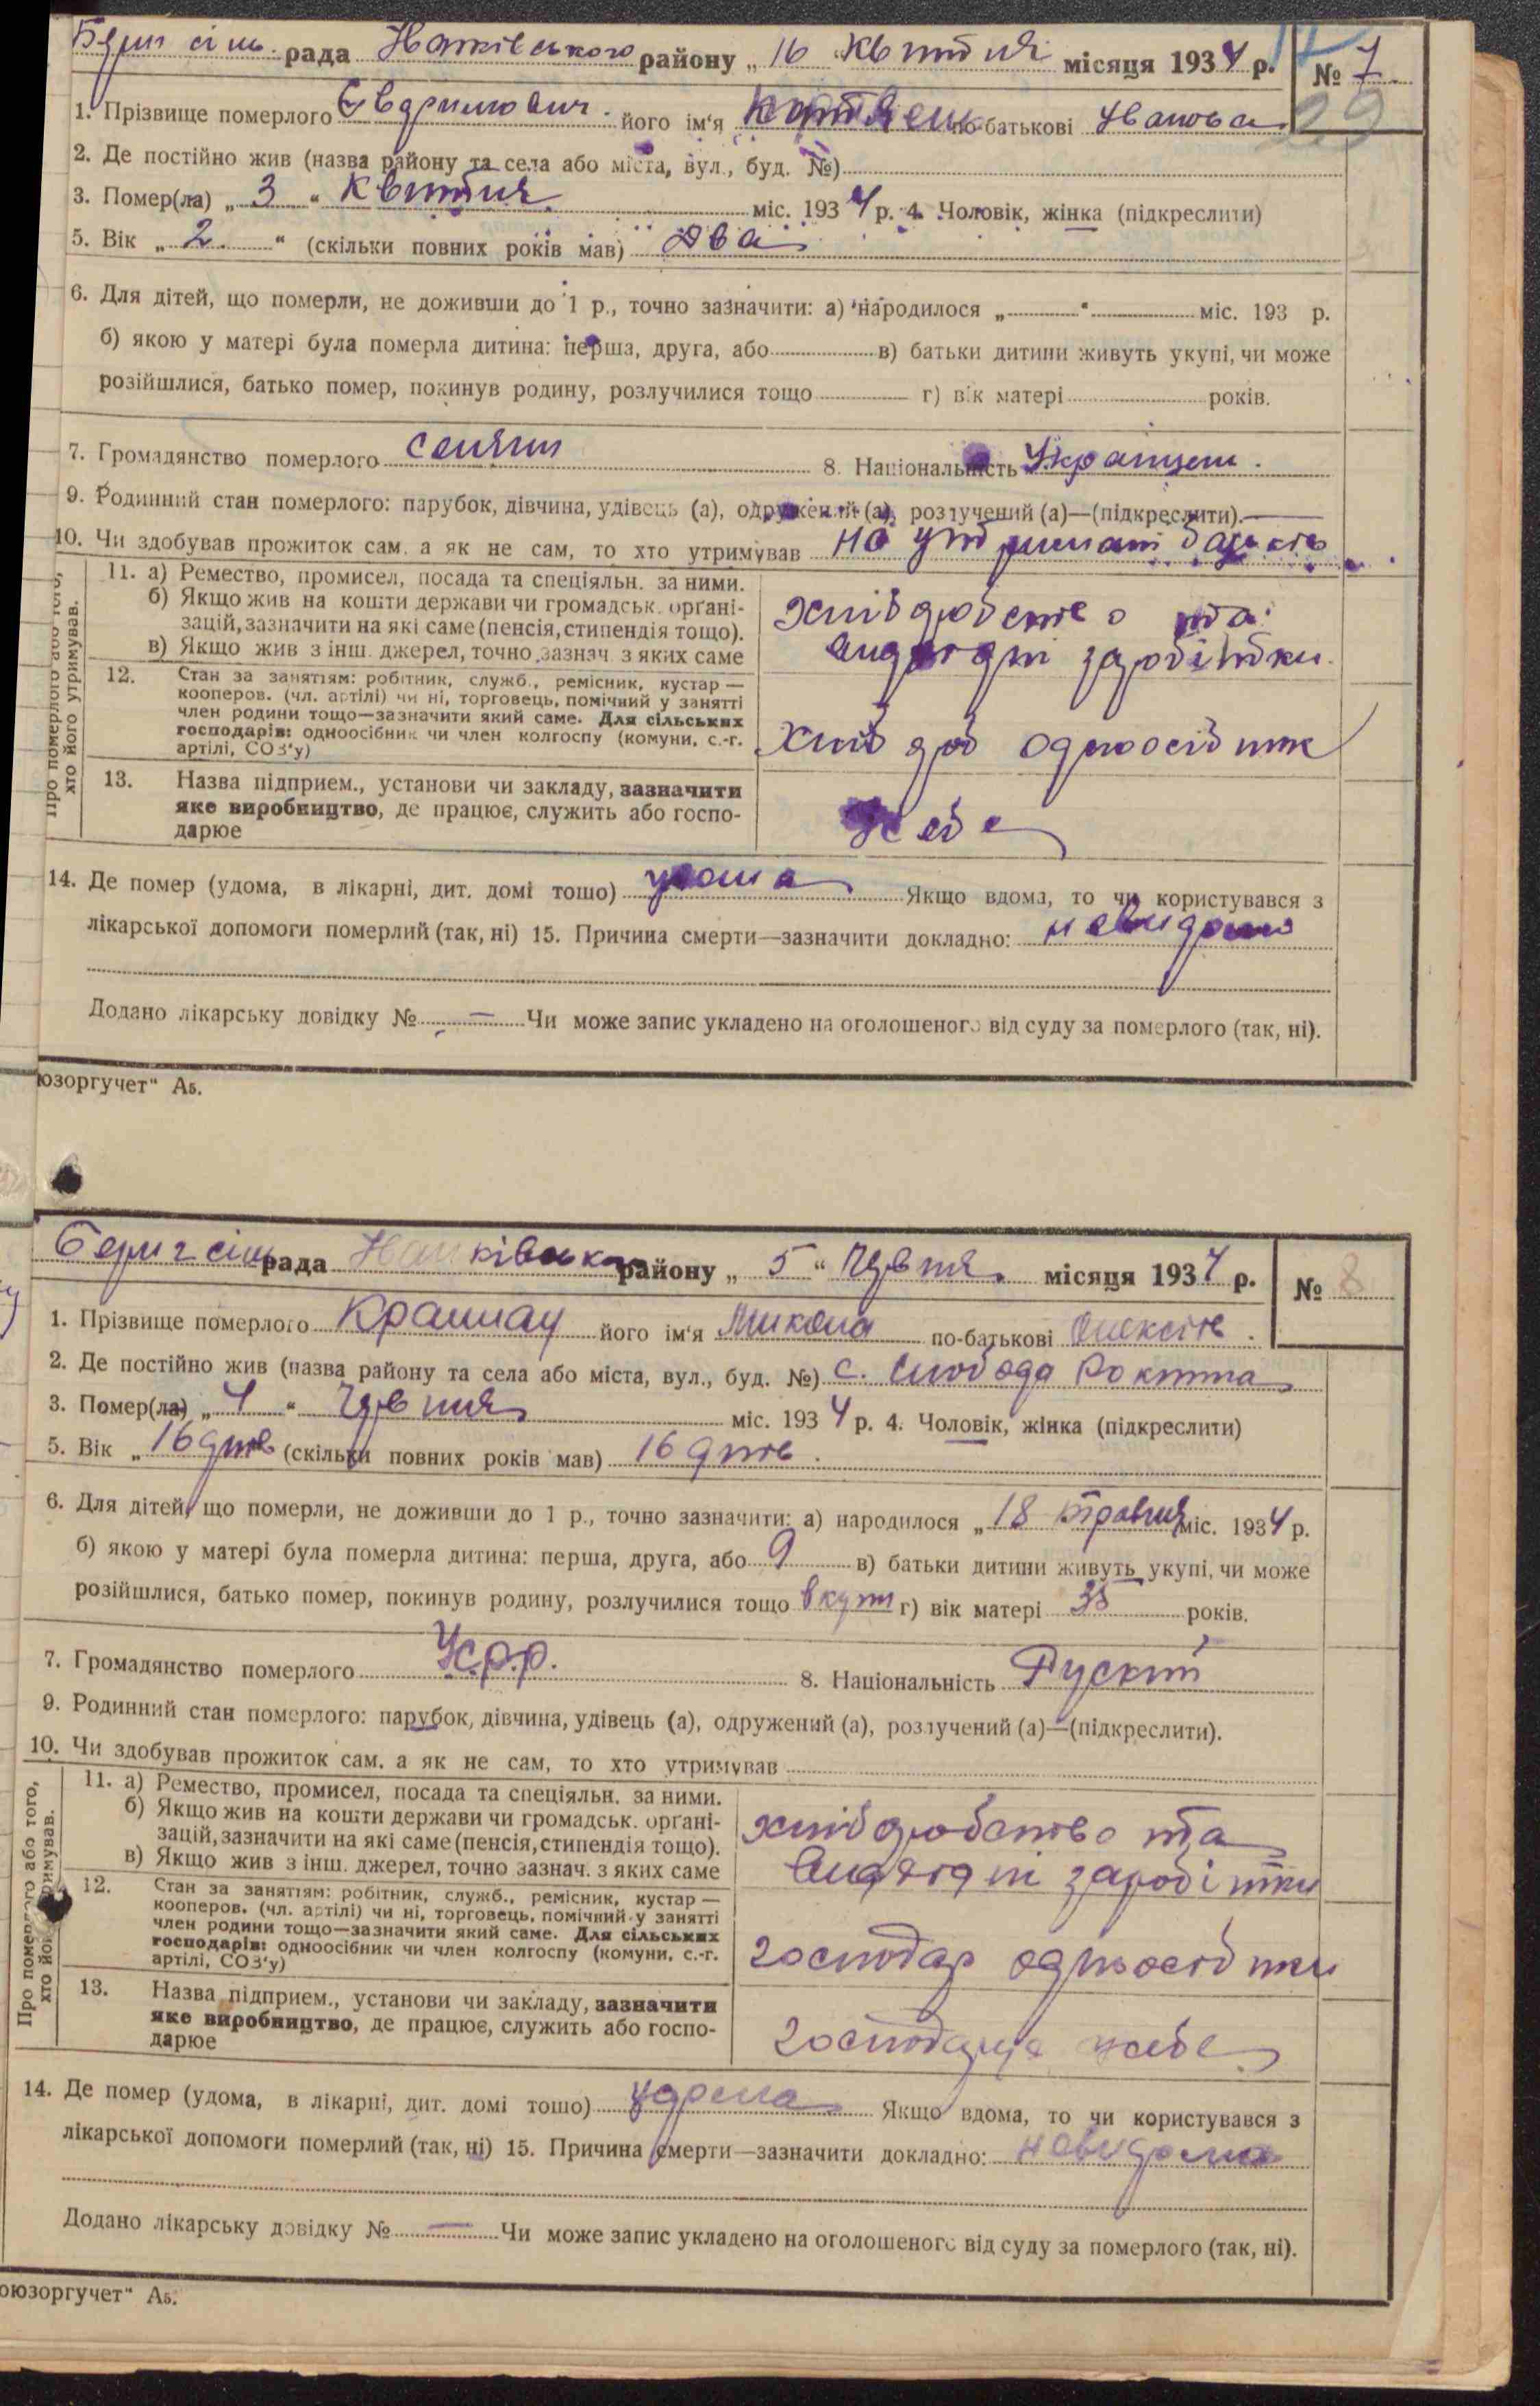 рада району „ 16 “ місяця 1934 р. № 7.
1. Прізвище померлого його ім'я по-батькові Иванова
2. Де постійно жив (назва району та села або міста, вул., буд. №)
3. Помер(ла) „ 3 “ Квитня міс. 1934 р. 4. Чоловік, жінка (підкреслити)
5. Вік „ 2. “ (скільки повних років мав) два
6. Для дітей, що померли, не доживши до 1 р., точно зазначити: а) народилося „ “ міс. 193 р.
б) якою у матері була померла дитина: перша, друга, або в) батьки дитини живуть укупі, чи може
розійшлися, батько помер, покинув родину, розлучилися тощо г) вік матері років.
7. Громадянство померлого 8. Національність
9. Родинний стан померлого: парубок, дівчина, удівець (а), одружений (а), розлучений (а)—(підкреслити).
10. Чи здобував прожиток сам, а як не сам, то хто утримував на
Про померлого або того, хто його утримував.
11. а) Ремество, промисел, посада та спеціяльн. за ними.
б) Якщо жив на кошти держави чи громадськ. орґані-
зацій, зазначити на які саме (пенсія, стипендія тощо).
в) Якщо жив з інш. джерел, точно зазнач. з яких саме
хлібдробство та
заробітки.
12. Стан за заняттям: робітник, служб., ремісник, кустар —
кооперов. (чл. артілі) чи ні, торговець, помічний у занятті
член родини тощо—зазначити який саме. Для сільських
господарів: одноосібник чи член колгоспу (комуни, с.-г.
артілі, СОЗ'у)
Хліб дроб одноосібник
13. Назва підприєм., установи чи закладу, зазначити
яке виробництво, де працює, служить або госпо-
дарює
у себе
14. Де помер (удома, в лікарні, дит. домі тощо) удома Якщо вдома, то чи користувався з
лікарської допомоги померлий (так, ні) 15. Причина смерти—зазначити докладно: невидомо
Додано лікарську довідку № — Чи може запис укладено на оголошеного від суду за померлого (так, ні).
юзоргучет“ А5.
рада району „ 5 “ Червня місяця 1934 р. № 8
1. Прізвище померлого його ім'я Микола по-батькові Олексієв.
2. Де постійно жив (назва району та села або міста, вул., буд. №) с. Слобода
3. Помер(ла) „ 4 “ Червня міс. 1934 р. 4. Чоловік, жінка (підкреслити)
5. Вік „ 16 днів (скільки повних років мав) 16 днів.
6. Для дітей, що померли, не доживши до 1 р., точно зазначити: а) народилося „ 18 травня міс. 1934 р.
б) якою у матері була померла дитина: перша, друга, або 9 в) батьки дитини живуть укупі, чи може
розійшлися, батько помер, покинув родину, розлучилися тощо вкупи г) вік матері 35 років.
7. Громадянство померлого У.с.р.р. 8. Національність Рускій
9. Родинний стан померлого: парубок, дівчина, удівець (а), одружений (а), розлучений (а)—(підкреслити).
10. Чи здобував прожиток сам, а як не сам, то хто утримував
Про померлого або того, хто його утримував.
11. а) Ремество, промисел, посада та спеціяльн. за ними.
б) Якщо жив на кошти держави чи громадськ. орґані-
зацій, зазначити на які саме (пенсія, стипендія тощо).
в) Якщо жив з інш. джерел, точно зазнач. з яких саме
хлібдробство та
заробітки
12. Стан за заняттям: робітник, служб., ремісник, кустар —
кооперов. (чл. артілі) чи ні, торговець, помічний у занятті
член родини тощо—зазначити який саме. Для сільських
господарів: одноосібник чи член колгоспу (комуни, с.-г.
артілі, СОЗ'у)
господар
13. Назва підприєм., установи чи закладу, зазначити
яке виробництво, де працює, служить або госпо-
дарює
господарує усебе
14. Де помер (удома, в лікарні, дит. домі тощо) удома Якщо вдома, то чи користувався з
лікарської допомоги померлий (так, ні) 15. Причина смерти—зазначити докладно: невидома
Додано лікарську довідку № — Чи може запис укладено на оголошеного від суду за померлого (так, ні).
оюзоргучет“ А5.